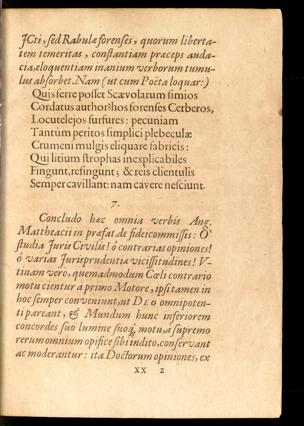 JCti, sed Rabulæ forenses, quorum liberta-
tem temeritas, constantiam præceps auda-
cia, eloquentiam inanium verborum tumu-
lus absorbet. Nam (ut cum Poëta loquar:)
Quis ferre posset Scævolatum simios
Cordatus author? hos forenses Cerberos,
Locutelejos furfures: pecuniam
Tantùm peritos simplici plebeculæ
Crumeni mulgis eliquare fabricis:
Qui litium strophas inexplicabiles
Fingunt, refingunt; & reis clientulis
Semper cavillant: nam cavere nesciunt.
7.
Concludo hæc omnia verbis Ang.
Mattheacii in præfat. de fideicommiss: Ô
studia Juris Civilis! ô contrarias opiniones!
ô varias Jurisprudentiæ vicissitudines! V-
tinam vero, quemadmodum Cœli contrario
motu cientur à primo Motore, ipsi tamen in
hoc semper conveniunt, ut DEO omnipoten-
ti pareant, & Mundum hunc inferiorem
concordes suo lumine suoq; motu, à supremo
rerum omnium opifice sibi indito, conservant
ac moderantur: ita Doctorum opiniones, ex
XX 2